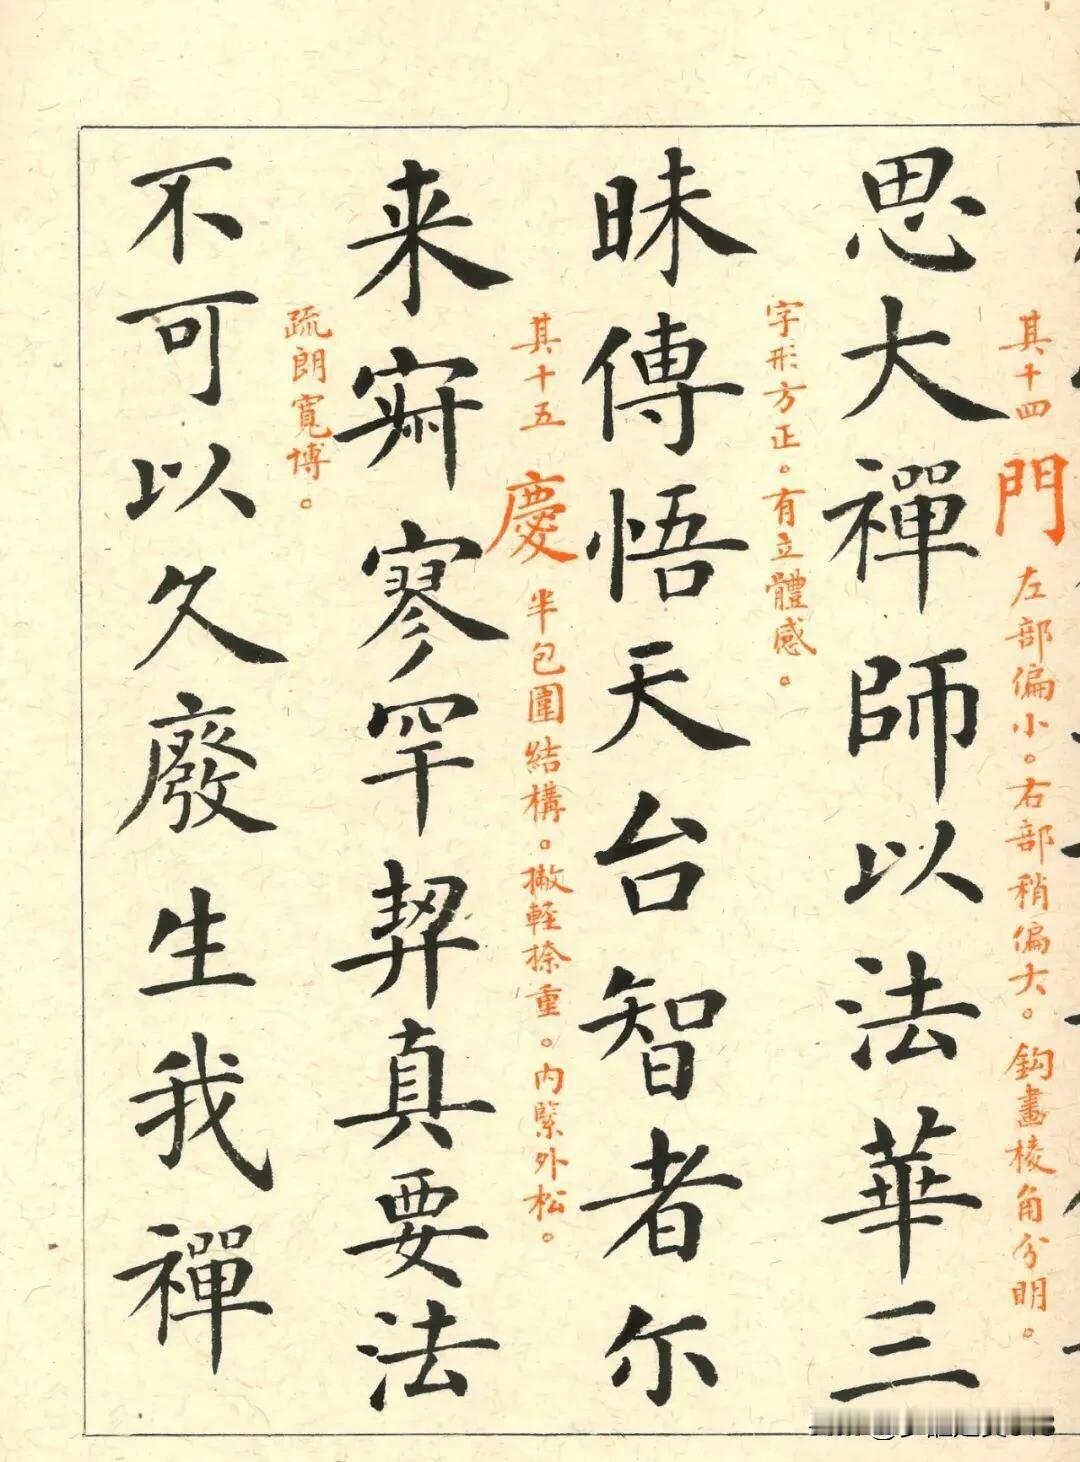 其十四 門 左部偏小。右部稍偏大。鈎畫棱角分明。
思大禪師以法華三
字形方正。有立體感。
昧傳悟天台智者尔
其十五 慶 半包圍結構。撇輕捺重。内緊外松。
来寂寥罕契真要法
疏朗寬博。
不可以久廢生我禪